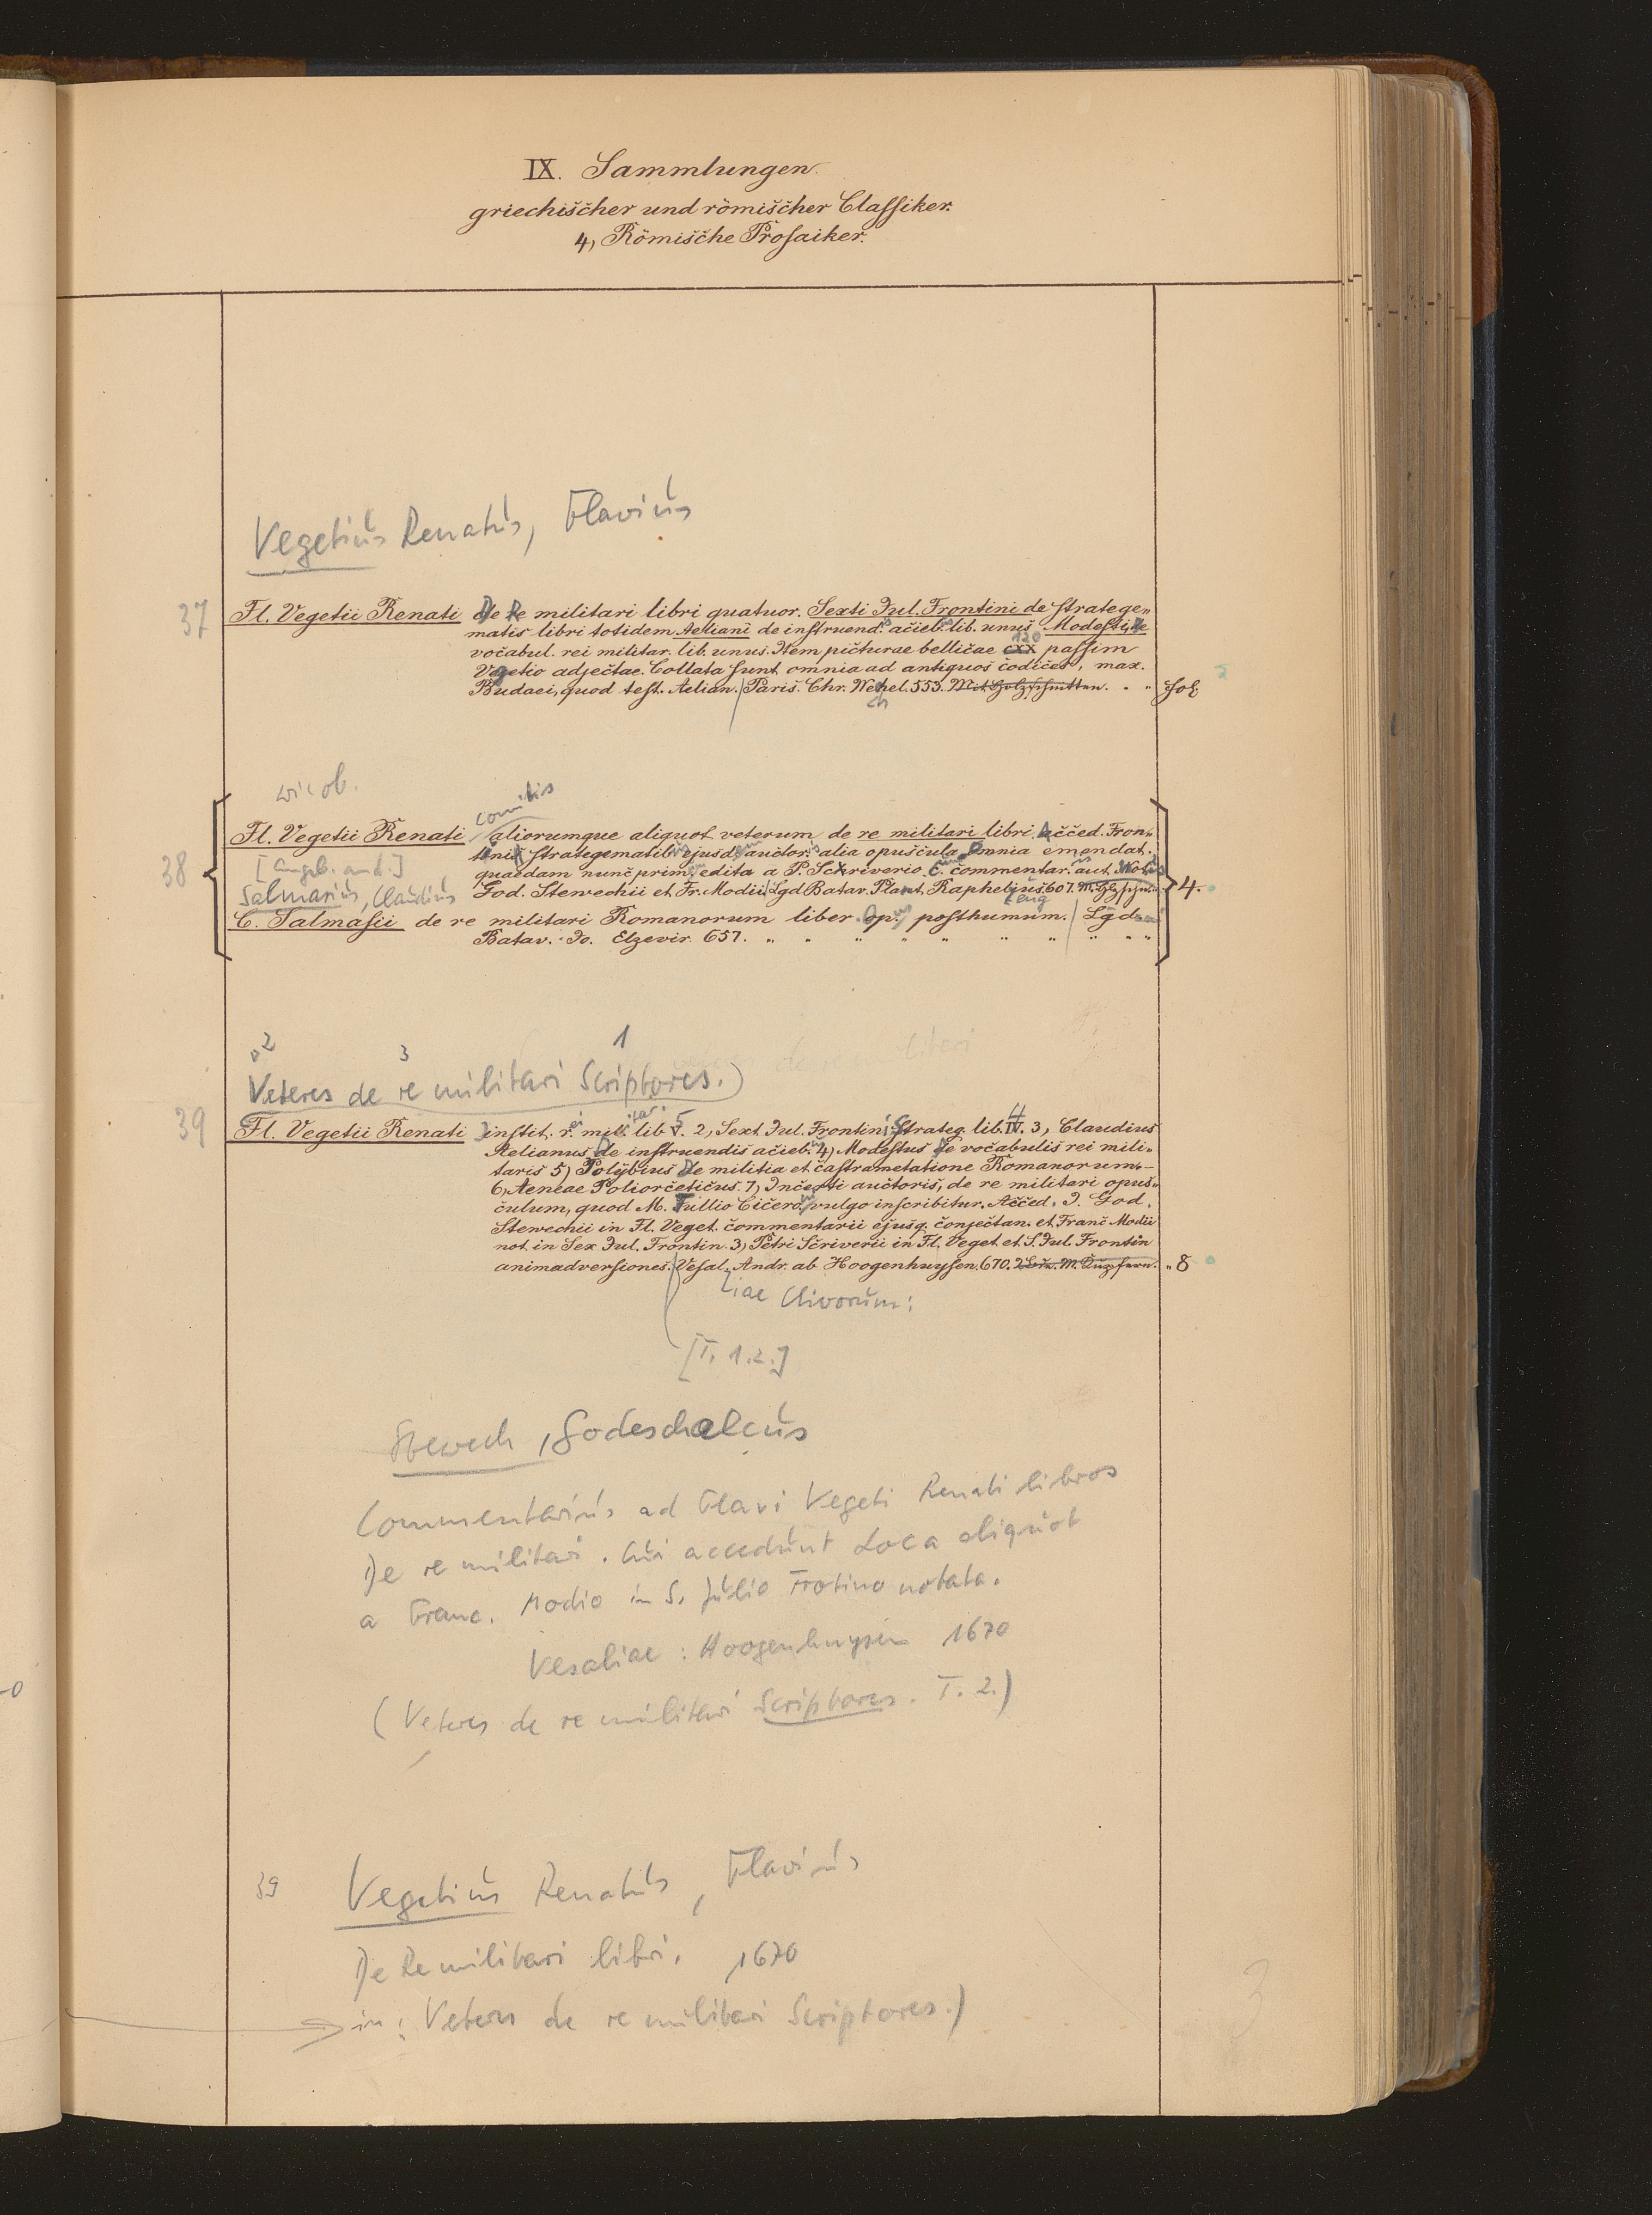 IX. Sammlungen.
griechischer und römischer Classiker.
4, Römische Prosaiker.
Vegetius Renatus, Flavius
37 Fl. Vegetii Renati De Re militari libri quatuor. Sexti Jul. Frontini de stratege„
matis libri totidem Aeliani de instruend. acieb. lib. unus Modesti de
vocabul. rei militar. lib. unus. Item picturae bellicae cxx 120 passim
Vegetio adjectae. Collata sunt omnia ad antiquos codices, max.
Budaei, quod test. Aelian. Paris. Chr. Wechel. 553. Mit Holzschnitten. fol.
wie ob.
comitis
38 Fl. Vegetii Renati aliorumque aliquot veterum de re militari libri. Acced. Fron„
tinis strategematib. ejusd. auctor. alia opuscula. Omnia emendat.
[Angeb. and.] quaedam nunc prim. edita a P. Scriverio c. commentar. aut. Notis
Salmasius, Claudius God. Stewechii et Fr. Modii Lgd Batav. Plant. Raphelius 607. 4.
C. Salmasii de re militari Romanorum liber. op. posthumum. Lgd
Batav. Jo. Elzevir 657.
2 3 1
Veteres de re militari Scriptores.)
39 Fl. Vegetii Renati instit. r. mil. lib. V. 2, Sext. Jul. Frontini Strateg. lib. IV. 3, Claudius
Aelianus de instruendis acieb. 4) Modestus de vocabulis rei mili„
taris 5) Polybius De militia et castrametatione Romanorum.
6, Aeneae Poliorceticus. 7, Incerti auctoris, de re militari opus„
culum, quod M. Tullio Cicero vulgo inscribitur. Acced. J. God.
Stewechii in Fl. Veget. commentarii ejusq. conjectan. et Franc Modii
not. in Sex Jul. Frontin. 3) Petri Scriverii in Fl. Veget. et S. Jul. Frontin
animadversiones. Vesal. Andr. ab Hoogenhuysen. 670. 2 M. Kupfern. „ 8
liae Clivorum:
[T. 1.2.]
Stewech, Godeschalcus
Commentarius ad Flavi Vegeti Renati libros
De re militari. Cui accedunt Loca aliquot
a Franc. Modio in S. Julio Frotino notata.
Vesaliae: Hoogenhuysen 1670
(Veteres de re militari Scriptores. T. 2.)
39 Vegetius Renatus, Flavius
De Re militari libri. 1670
in: Veteres de re militari Scriptores.)
3